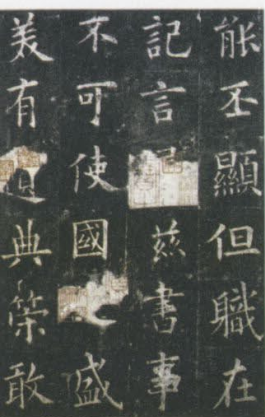 能丕顯但職在
記言慈書事
不可使國盛
美有典策敢